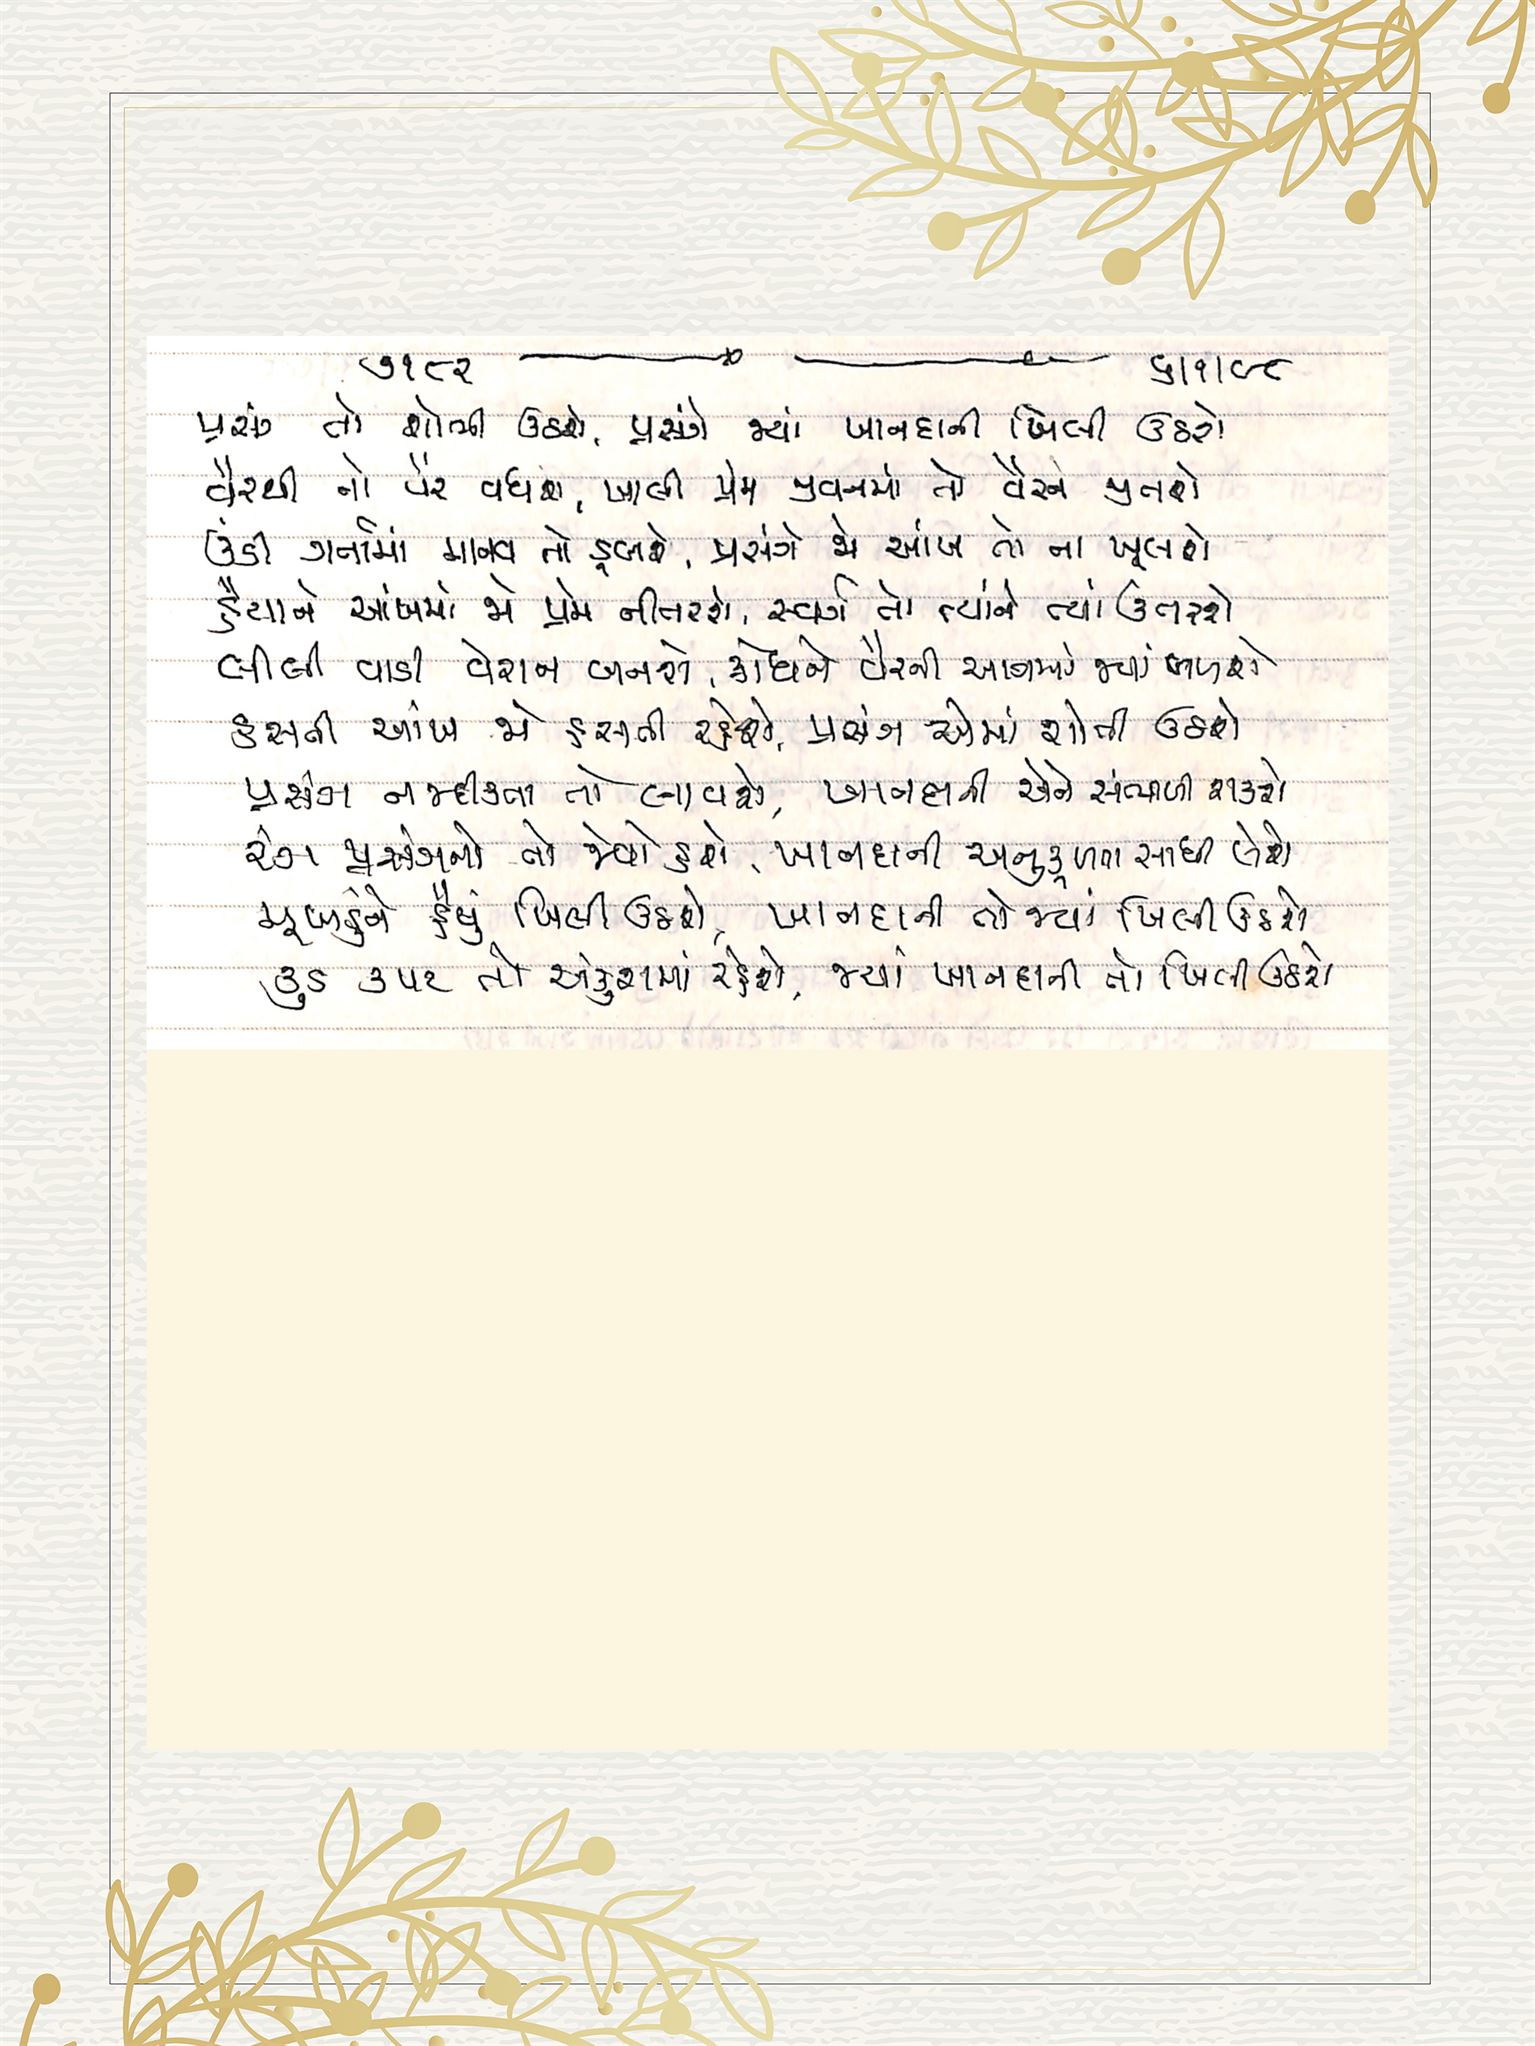 ૭૧૮૨ ૬/૧/૯૮
પ્રસંગ તો શોભી ઉઠશે, પ્રસંગે જ્યાં ખાનદાની ખિલી ઉઠશે
વૈરથી તો વૈર વધશે, ખાલી પ્રેમ જીવનમાં તો વૈરને જીતશે
ઉંડી ગર્તામાં માનવ તો ડૂબશે, પ્રસંગે જો આંખ તો ના ખૂલશે
હૈયાને આંખમાં જો પ્રેમ નીતરશે, સ્વર્ગ તો ત્યાંને ત્યાં ઉતરશે
લીલી વાડી વેરાન બનશે, ક્રોધને વૈરની આગમાં જ્યાં બળશે
હસતી આંખ જો હસતી રહેશે, પ્રસંગ એમાં શોભી ઉઠશે
પ્રસંગ નજદીકતા તો લાવશે, ખાનદાની એને સંભાળી શકશે
રંગ પ્રસંગનો તો જેવો હશે, ખાનદાની અનુકૂળતા સાધી લેશે
મુખડુંને હૈયું ખિલી ઉઠશે, ખાનદાની તો જ્યાં ખિલી ઉઠશે
કુડ કપટ તો અંકુશમાં રહેશે, જ્યાં ખાનદાની તો ખિલી ઉઠશે